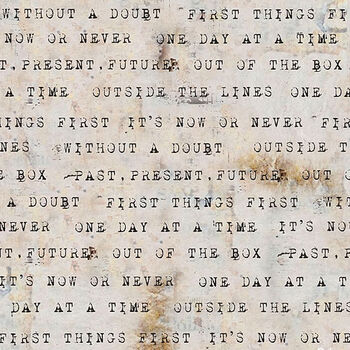 WITHOUT A DOUBT FIRST THINGS FI
NOW OR NEVER ONE DAY AT A TIME
T, PRESENT, FUTURE OUT OF THE BOX
A TIME OUTSIDE THE LINES ONE DA
INGS FIRST IT'S NOW OR NEVER FIR
NES WITHOUT A DOUBT OUTSIDE T
E BOX PAST, PRESENT, FUTURE OUT O
A DOUBT FIRST THINGS FIRST WIT
NEVER ONE DAY AT A TIME IT'S NO
NT, FUTURE OUT OF THE BOX PAST, P
IT'S NOW OR NEVER ONE DAY AT A
DAY AT A TIME OUTSIDE THE LINES
FIRST THINGS FIRST IT'S NOW OR NE